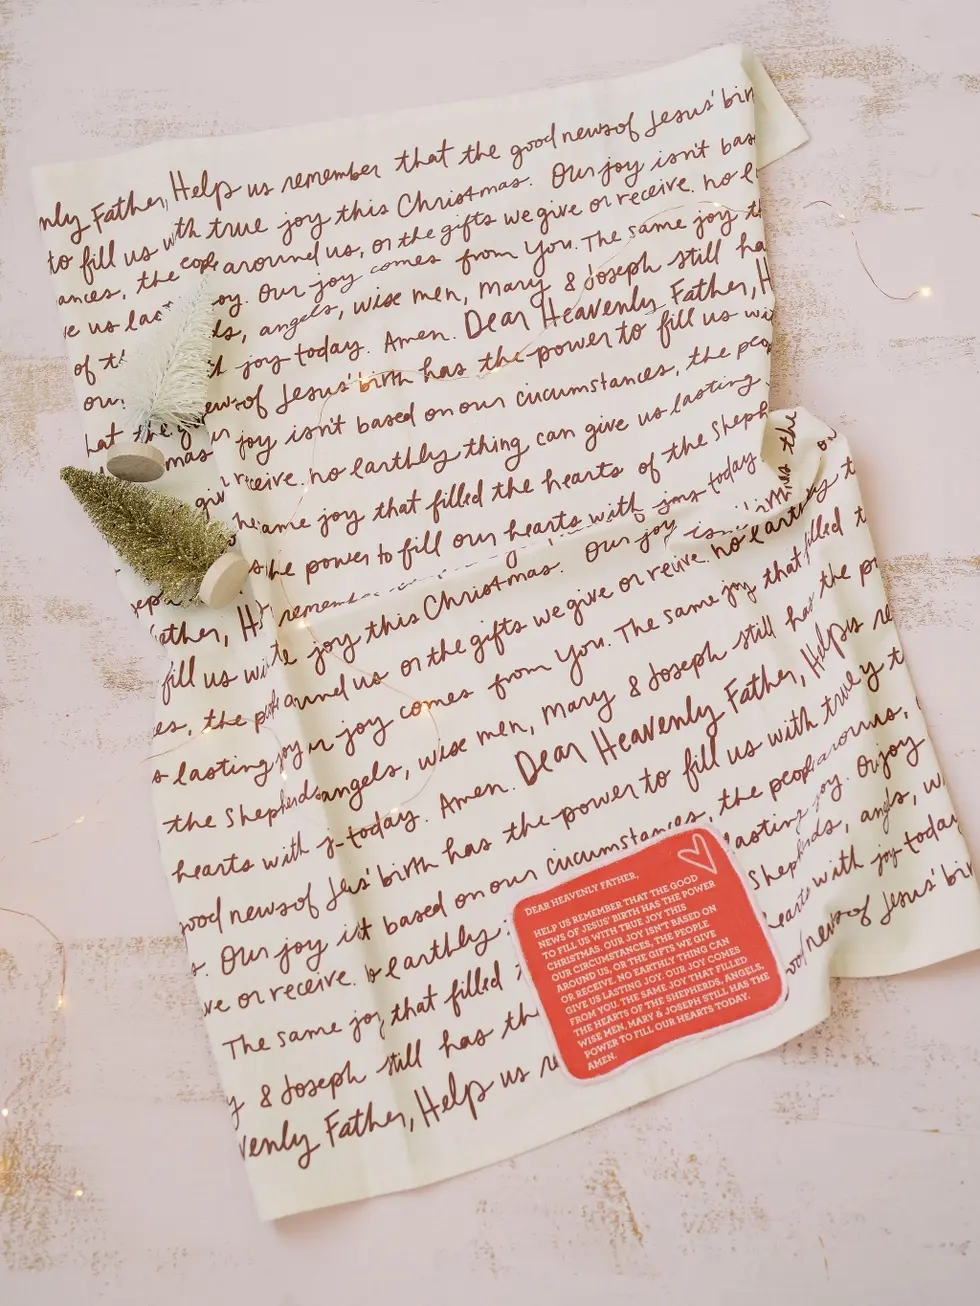 nly Father, Help us remember that the good news of Jesus' bir
to fill us with true joy this Christmas. Our joy isn't bas
ances, the around us, or the gifts we give or receive. No e
ve us las oy. Our joy comes from You. The same joy th
of t ds, angels, wise men, Mary & Joseph still ha
our joy today. Amen. Dear Heavenly Father, H
hat the g ews of Jesus' birth has the power to fill us wi
mas joy isn't based on our circumstances, the peo
giv r receive. No earthly thing can give us lasting
ame joy that filled the hearts of the Sheph
s the power to fill our hearts with joy today
ather, H remember
fill us wi joy this Christmas. Our joy isn't
es, the around us or the gifts we give or receive. No earthly t
s lasting joy joy comes from You. The same joy that filled t
the Shepherds angels, wise men, Mary & Joseph still has the p
hearts with j today. Amen. Dear Heavenly Father, Help us re
good news of Jesus' birth has the power to fill us with true
s. Our joy based on our circumstances, the people around us,
ve or receive. earthly lasting joy. Our joy
The same joy that filled Shepherds, angels, w
y & Joseph still has th hearts with joy today
venly Father, Help us re good news of Jesus' bir
DEAR HEAVENLY FATHER,
HELP US REMEMBER THAT THE GOOD
NEWS OF JESUS' BIRTH HAS THE POWER
TO FILL US WITH TRUE JOY THIS
CHRISTMAS. OUR JOY ISN'T BASED ON
OUR CIRCUMSTANCES, THE PEOPLE
AROUND US, OR THE GIFTS WE GIVE
OR RECEIVE. NO EARTHLY THING CAN
GIVE US LASTING JOY. OUR JOY COMES
FROM YOU. THE SAME JOY THAT FILLED
THE HEARTS OF THE SHEPHERDS, ANGELS,
WISE MEN, MARY & JOSEPH STILL HAS THE
POWER TO FILL OUR HEARTS TODAY.
AMEN.